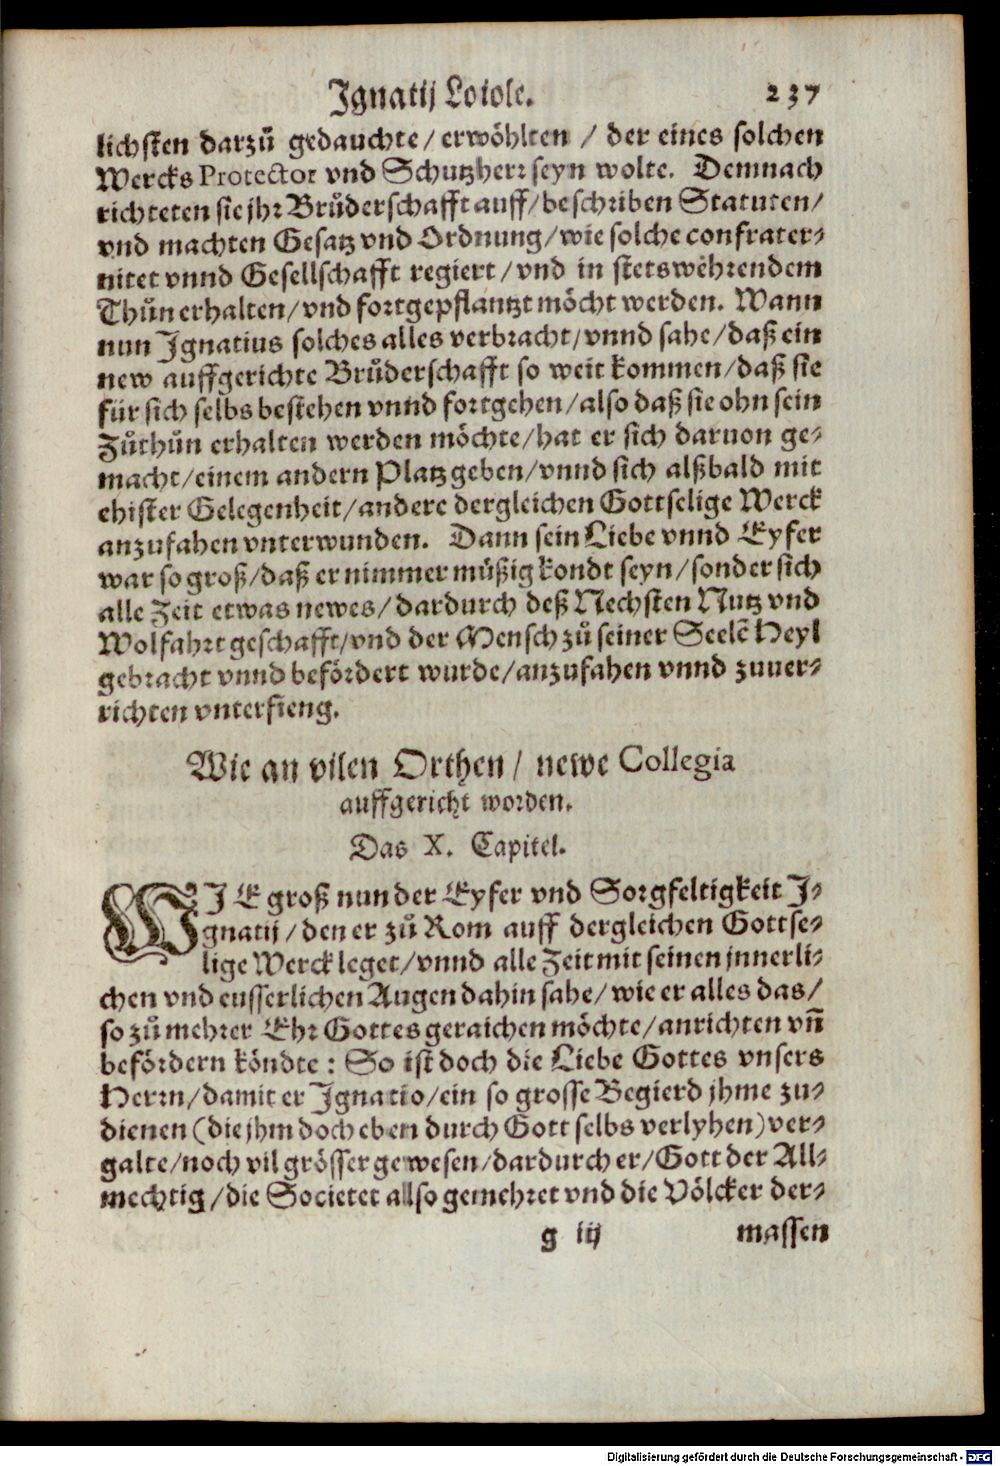 Ignatij Loiole. 237
lichsten darzuͦ gedauchte / erwoͤhlten / der eines solchen
Wercks Protector vnd Schutzherr seyn wolte. Demnach
richteten sie jhr Bruͤderschafft auff / beschriben Statuten /
vnd machten Gesatz vnd Ordnung / wie solche confrater-
nitet vnnd Gesellschafft regiert / vnd in stetswêhrendem
Thuͦn erhalten / vnd fortgepflantzt moͤcht werden. Wann
nun Ignatius solches alles verbracht / vnnd sahe / daß ein
new auffgerichte Bruͤderschafft so weit kommen / daß sie
fuͤr sich selbs bestehen vnnd fortgehen / also daß sie ohn sein
Zuͦthuͦn erhalten werden moͤchte / hat er sich daruon ge-
macht / einem andern Platz geben / vnnd sich alßbald mit
ehister Gelegenheit / andere dergleichen Gottselige Werck
anzufahen vnterwunden. Dann sein Liebe vnnd Eyfer
war so groß / daß er nimmer muͤßig kondt seyn / sonder sich
alle Zeit etwas newes / dardurch deß Nechsten Nutz vnd
Wolfahrt geschafft / vnd der Mensch zuͦ seiner Seelẽ Heyl
gebracht vnnd befoͤrdert wurde / anzufahen vnnd zuuer-
richten vnterfieng.
Wie an vilen Orthen / newe Collegia
auffgericht worden.
Das X. Capitel.
WIE groß nun der Eyfer vnd Sorgfeltigkeit I-
gnatij / den er zuͦ Rom auff dergleichen Gottse-
lige Werck leget / vnnd alle Zeit mit seinen jnnerli-
chen vnd eusserlichen Augen dahin sahe / wie er alles das /
so zuͦ mehrer Ehr Gottes geraichen moͤchte / anrichten vñ
befoͤrdern koͤndte : So ist doch die Liebe Gottes vnsers
Herrn / damit er Ignatio / ein so grosse Begierd jhme zu-
dienen (die jhm doch eben durch Gott selbs verlyhen) ver-
galte / noch vil groͤsser gewesen / dardurch er / Gott der All-
mechtig / die Societet allso gemehret vnd die Voͤlcker der-
g iij massen
Digitalisierung gefördert durch die Deutsche Forschungsgemeinschaft - DFG